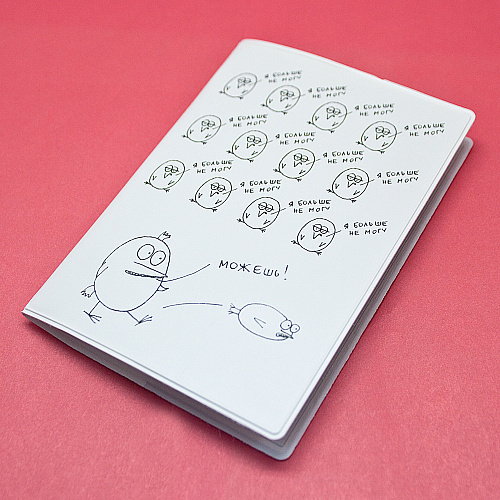 Я БОЛЬШЕ
НЕ МОГУ
Я БОЛЬШЕ
НЕ МОГУ
Я БОЛЬШЕ
НЕ МОГУ
Я БОЛЬШЕ
НЕ МОГУ
Я БОЛЬШЕ
НЕ МОГУ
Я БОЛЬШЕ
НЕ МОГУ
Я БОЛЬШЕ
НЕ МОГУ
Я БОЛЬШЕ
НЕ МОГУ
Я БОЛЬШЕ
НЕ МОГУ
Я БОЛЬШЕ
НЕ МОГУ
Я БОЛЬШЕ
НЕ МОГУ
Я БОЛЬШЕ
НЕ МОГУ
МОЖЕШЬ!